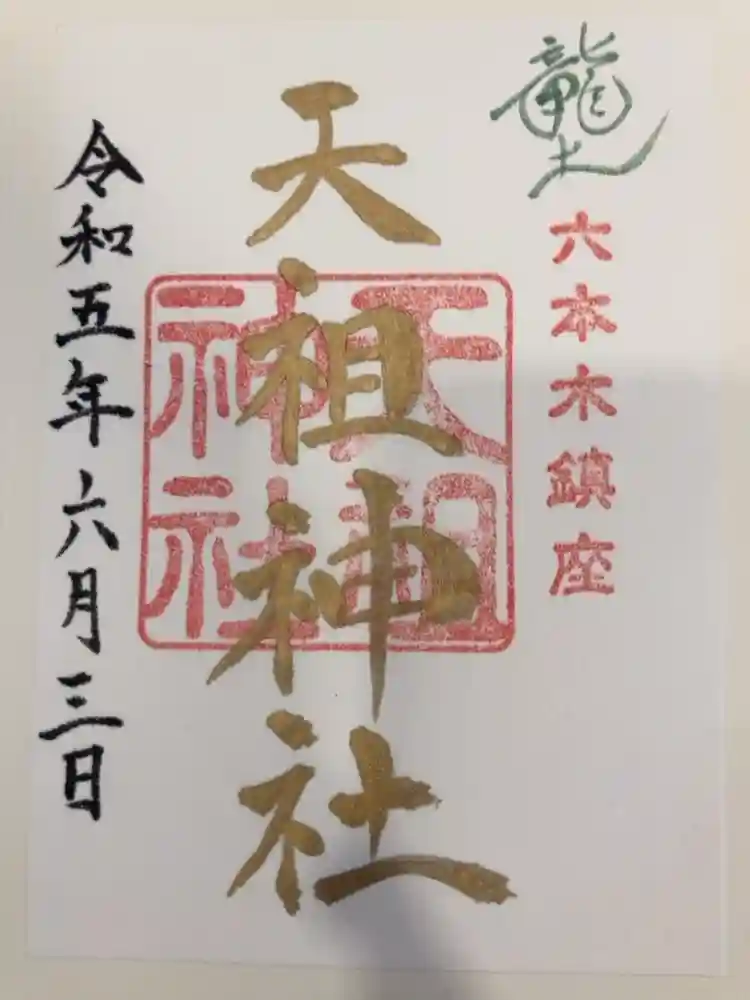 龍土
六本木鎮座
天祖神社
天祖神社
令和五年六月三日